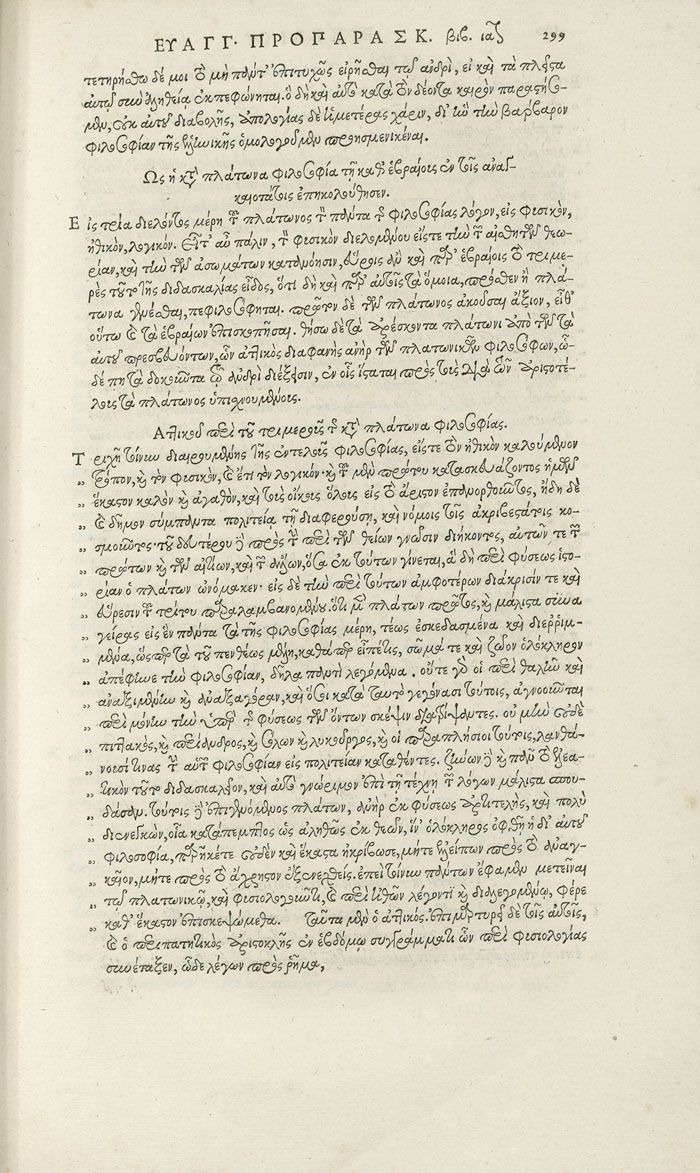 ΕΥΑΓΓ· ΠΡΟΠΑΡΑΣΚ. βιβ. ιαʹ 299
τετηρήσθω δέ μοι τὸ μὴ πάντ' ἐπιτυχῶς εἰρῆσθαι τῷ ἀνδρὶ, εἰ καὶ τὰ πλεῖστα
αὐτῷ σὺν ἀληθείᾳ ἐκπεφώνηται. ὃ δὴ καὶ αὐτὸ κατὰ τὸν δέοντα καιρὸν παραστήσο-
μεν, οὐκ αὐτοῦ διαβολῆς, ἀπολογίας δὲ ἡμετέρας χάριν, δι' ἣν τὴν βάρβαρον
φιλοσοφίαν τῆς ἑλληνικῆς ὁμολογοῦμεν προτετιμηκέναι.
Ως ἡ κατὰ πλάτωνα φιλοσοφία τῇ καθ' ἑβραίους ἐν τοῖς ἀναγ-
καιοτάτοις ἐπηκολούθησεν.
Εἰς τρία διελόντος μέρη τοῦ πλάτωνος τὸν πάντα τῆς φιλοσοφίας λόγον, εἰς φυσικὸν,
ἠθικὸν, λογικόν. εἶτ' αὖ πάλιν, τὸν φυσικὸν διελομένου εἴς τε τὴν τῶν αἰσθητῶν θεω-
ρίαν, καὶ τὴν τῶν ἀσωμάτων κατανόησιν, εὕροις ἂν καὶ παρ' ἑβραίοις τὸ τριμε-
ρὲς τοῦτο τῆς διδασκαλίας εἶδος, ὅτι δὴ καὶ παρ' αὐτοῖς τὰ ὅμοια, πρόσθεν ἢ πλά-
τωνα γενέσθαι, πεφιλοσόφηται. πρῶτον δὲ τῶν πλάτωνος ἀκοῦσαι ἄξιον, εἶθ'
οὕτω καὶ τὰ ἑβραίων ἐπισκοπῆσαι. θήσω δὲ τὰ ἀρέσκοντα πλάτωνι ἀπὸ τῶν τὰ
αὐτοῦ πρεσβευόντων, ὧν ἀττικὸς διαφανὴς ἀνὴρ τῶν πλατωνικῶν φιλοσόφων, ὧ-
δέ πῃ τὰ δοκοῦντα τῷ ἀνδρὶ διέξεισιν, ἐν οἷς ἵσταται πρὸς τοὺς διὰ τῶν ἀριστοτέ-
λους τὰ πλάτωνος ὑπισχνουμένους.
Αττικοῦ περὶ τοῦ τριμεροῦς τῆς κατὰ πλάτωνα φιλοσοφίας.
Τριχῇ τοίνυν διαιρουμένης τῆς ἐντελοῦς φιλοσοφίας, εἴς τε τὸν ἠθικὸν καλούμενον
„ τόπον, καὶ τὸν φυσικὸν, καὶ ἔτι τὸν λογικόν· καὶ τοῦ μὲν πρώτου κατασκευάζοντος ἡμῶν
„ ἕκαστον καλὸν καὶ ἀγαθὸν, καὶ τοὺς οἴκους ὅλους εἰς τὸ ἄριστον ἐπανορθοῦντος, ἤδη δὲ
„ καὶ δῆμον σύμπαντα πολιτείᾳ τῇ διαφερούσῃ, καὶ νόμοις τοῖς ἀκριβεστάτοις κο-
„ σμοῦντος· τοῦ δευτέρου δὲ πρὸς τὴν περὶ τῶν θείων γνῶσιν διήκοντος, αὐτῶν τε τῶν
„ πρώτων καὶ τῶν αἰτίων, καὶ τῶν ἄλλων, ὅσα ἐκ τούτων γίνεται, ἃ δὴ περὶ φύσεως ἱστο-
„ ρίαν ὁ πλάτων ὠνόμακεν· εἰς δὲ τὴν περὶ τούτων ἀμφοτέρων διάκρισίν τε καὶ
„ εὕρεσιν τοῦ τρίτου παραλαμβανομένου. ὅτι μὲν πλάτων πρῶτος, καὶ μάλιστα συνα
„ γείρας εἰς ἓν πάντα τὰ τῆς φιλοσοφίας μέρη, τέως ἐσκεδασμένα καὶ διερριμ-
„ μένα, ὥσπερ τὰ τοῦ πενθέως μέλη, καθάπερ εἶπέ τις, σῶμά τε καὶ ζῷον ὁλόκληρον
„ ἀπέφηνε τὴν φιλοσοφίαν, δῆλα παντὶ λεγόμενα. οὔτε γὰρ οἱ περὶ θαλῆν καὶ
„ ἀναξιμένην καὶ ἀναξαγόραν, καὶ ὅσοι κατὰ ταυτὸ γεγόνασι τούτοις, ἀγνοοῦνται
„ περὶ μόνην τὴν ὑπὲρ τῆς φύσεως τῶν ὄντων σκέψιν διατρίψαντες. οὐ μὴν οὐδὲ
„ πιττακὸς, καὶ περίανδρος, καὶ σόλων καὶ λυκοῦργος, καὶ οἱ παραπλήσιοι τούτοις, λανθά-
„ νουσί τινας τὴν αὐτῶν φιλοσοφίαν εἰς πολιτείαν καταθέντες. ζήνων δὲ καὶ πᾶν τὸ ἐλεα-
„ τικὸν τοῦτο διδασκαλεῖον, καὶ αὐτὸ γνώριμον ἐπὶ τῇ τέχνῃ τῶν λόγων μάλιστα σπου-
„ δάσαν. τούτοις δὲ ἐπιγενόμενος πλάτων, ἀνὴρ ἐκ φύσεως ἀρτιτελὴς, καὶ πολὺ
„ διενεγκὼν, οἷα κατάπεμπτος ὡς ἀληθῶς ἐκ θεῶν, ἵν' ὁλόκληρος ὀφθῇ ἡ δι' αὐτοῦ
„ φιλοσοφία, παρῆκέ τε οὐδὲν καὶ ἕκαστα ἠκρίβωσε, μήτε ἐλλείπων πρὸς τὸ ἀναγ-
„ καῖον, μήτε πρὸς τὸ ἄχρηστον ἐξενεχθείς. ἐπεὶ τοίνυν πάντων ἔφαμεν μετεῖναι
„ τῷ πλατωνικῷ, καὶ φυσιολογοῦντι, καὶ περὶ ἠθῶν λέγοντι καὶ διαλεγομένῳ, φέρε
„ καθ' ἕκαστον ἐπισκεψώμεθα. Ταῦτα μὲν ὁ ἀττικός. ἐπιμαρτυρεῖ δὲ τοῖς αὐτοῖς,
καὶ ὁ περιπατητικὸς ἀριστοκλῆς ἐν ἑβδόμῳ συγγράμματι ὧν περὶ φυσιολογίας
συνέταξεν, ὧδε λέγων πρὸς ῥῆμα,